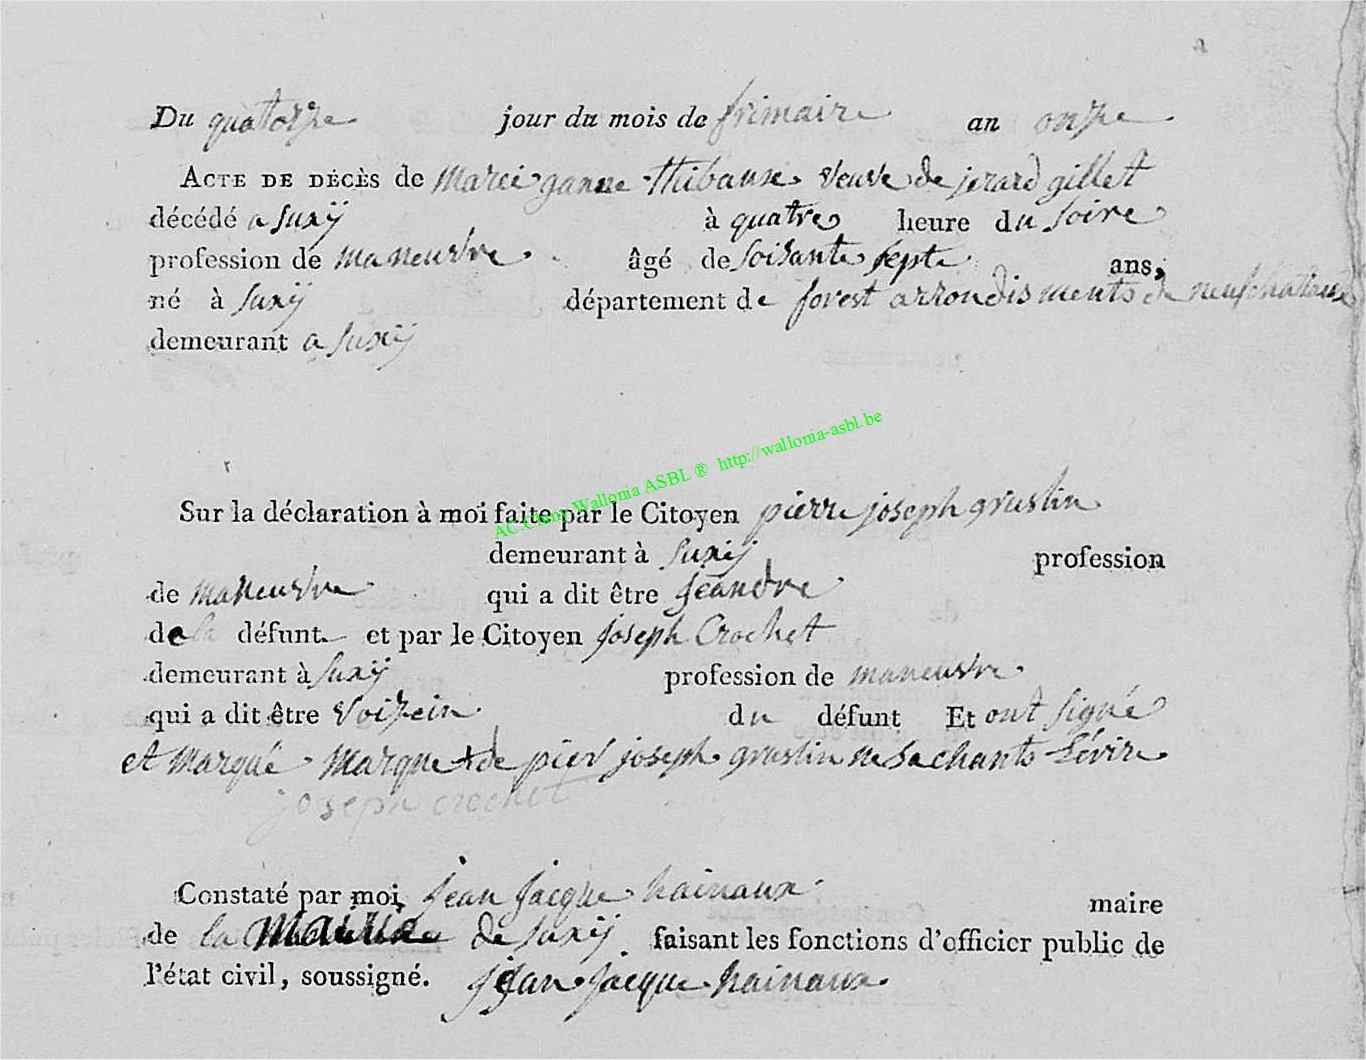 Du quatorze jour du mois de frimaire an onze
ACTE DE DÉCÈS de marei ganne thibaux veuve de jerard gillet
décédé a suxÿ à quatre heure du soire
profession de maneuvre âgé de soisante septe ans,
né à suxÿ département de forest arrondisments de neufchataux
demeurant a suxÿ
AC.Champ Wallonia ASBL ® http://wallonia-asbl.be
Sur la déclaration à moi faite par le Citoyen pierre joseph gruslin
demeurant à suxÿ profession
de maneuvre qui a dit être jeandre
de la défunt. et par le Citoyen joseph Crochet
demeurant à suxÿ profession de maneuvre
qui a dit être voizein du défunt Et ont signé
et marqué marque + de pier joseph gruslin ne sachants Lévire
joseph crochet
Constaté par moi, jean jacque hainaux maire
de la Mairie de suxÿ faisant les fonctions d'officier public de
l'état civil, soussigné. jean jacque hainaux